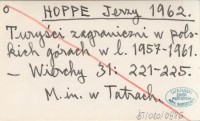 o HOPPE Jerzy 1962.
Turyści zagraniczni w pols-
kich górach w l. 1957-1961.
— Wierchy 31: 221-225.
M. in. w Tatrach.